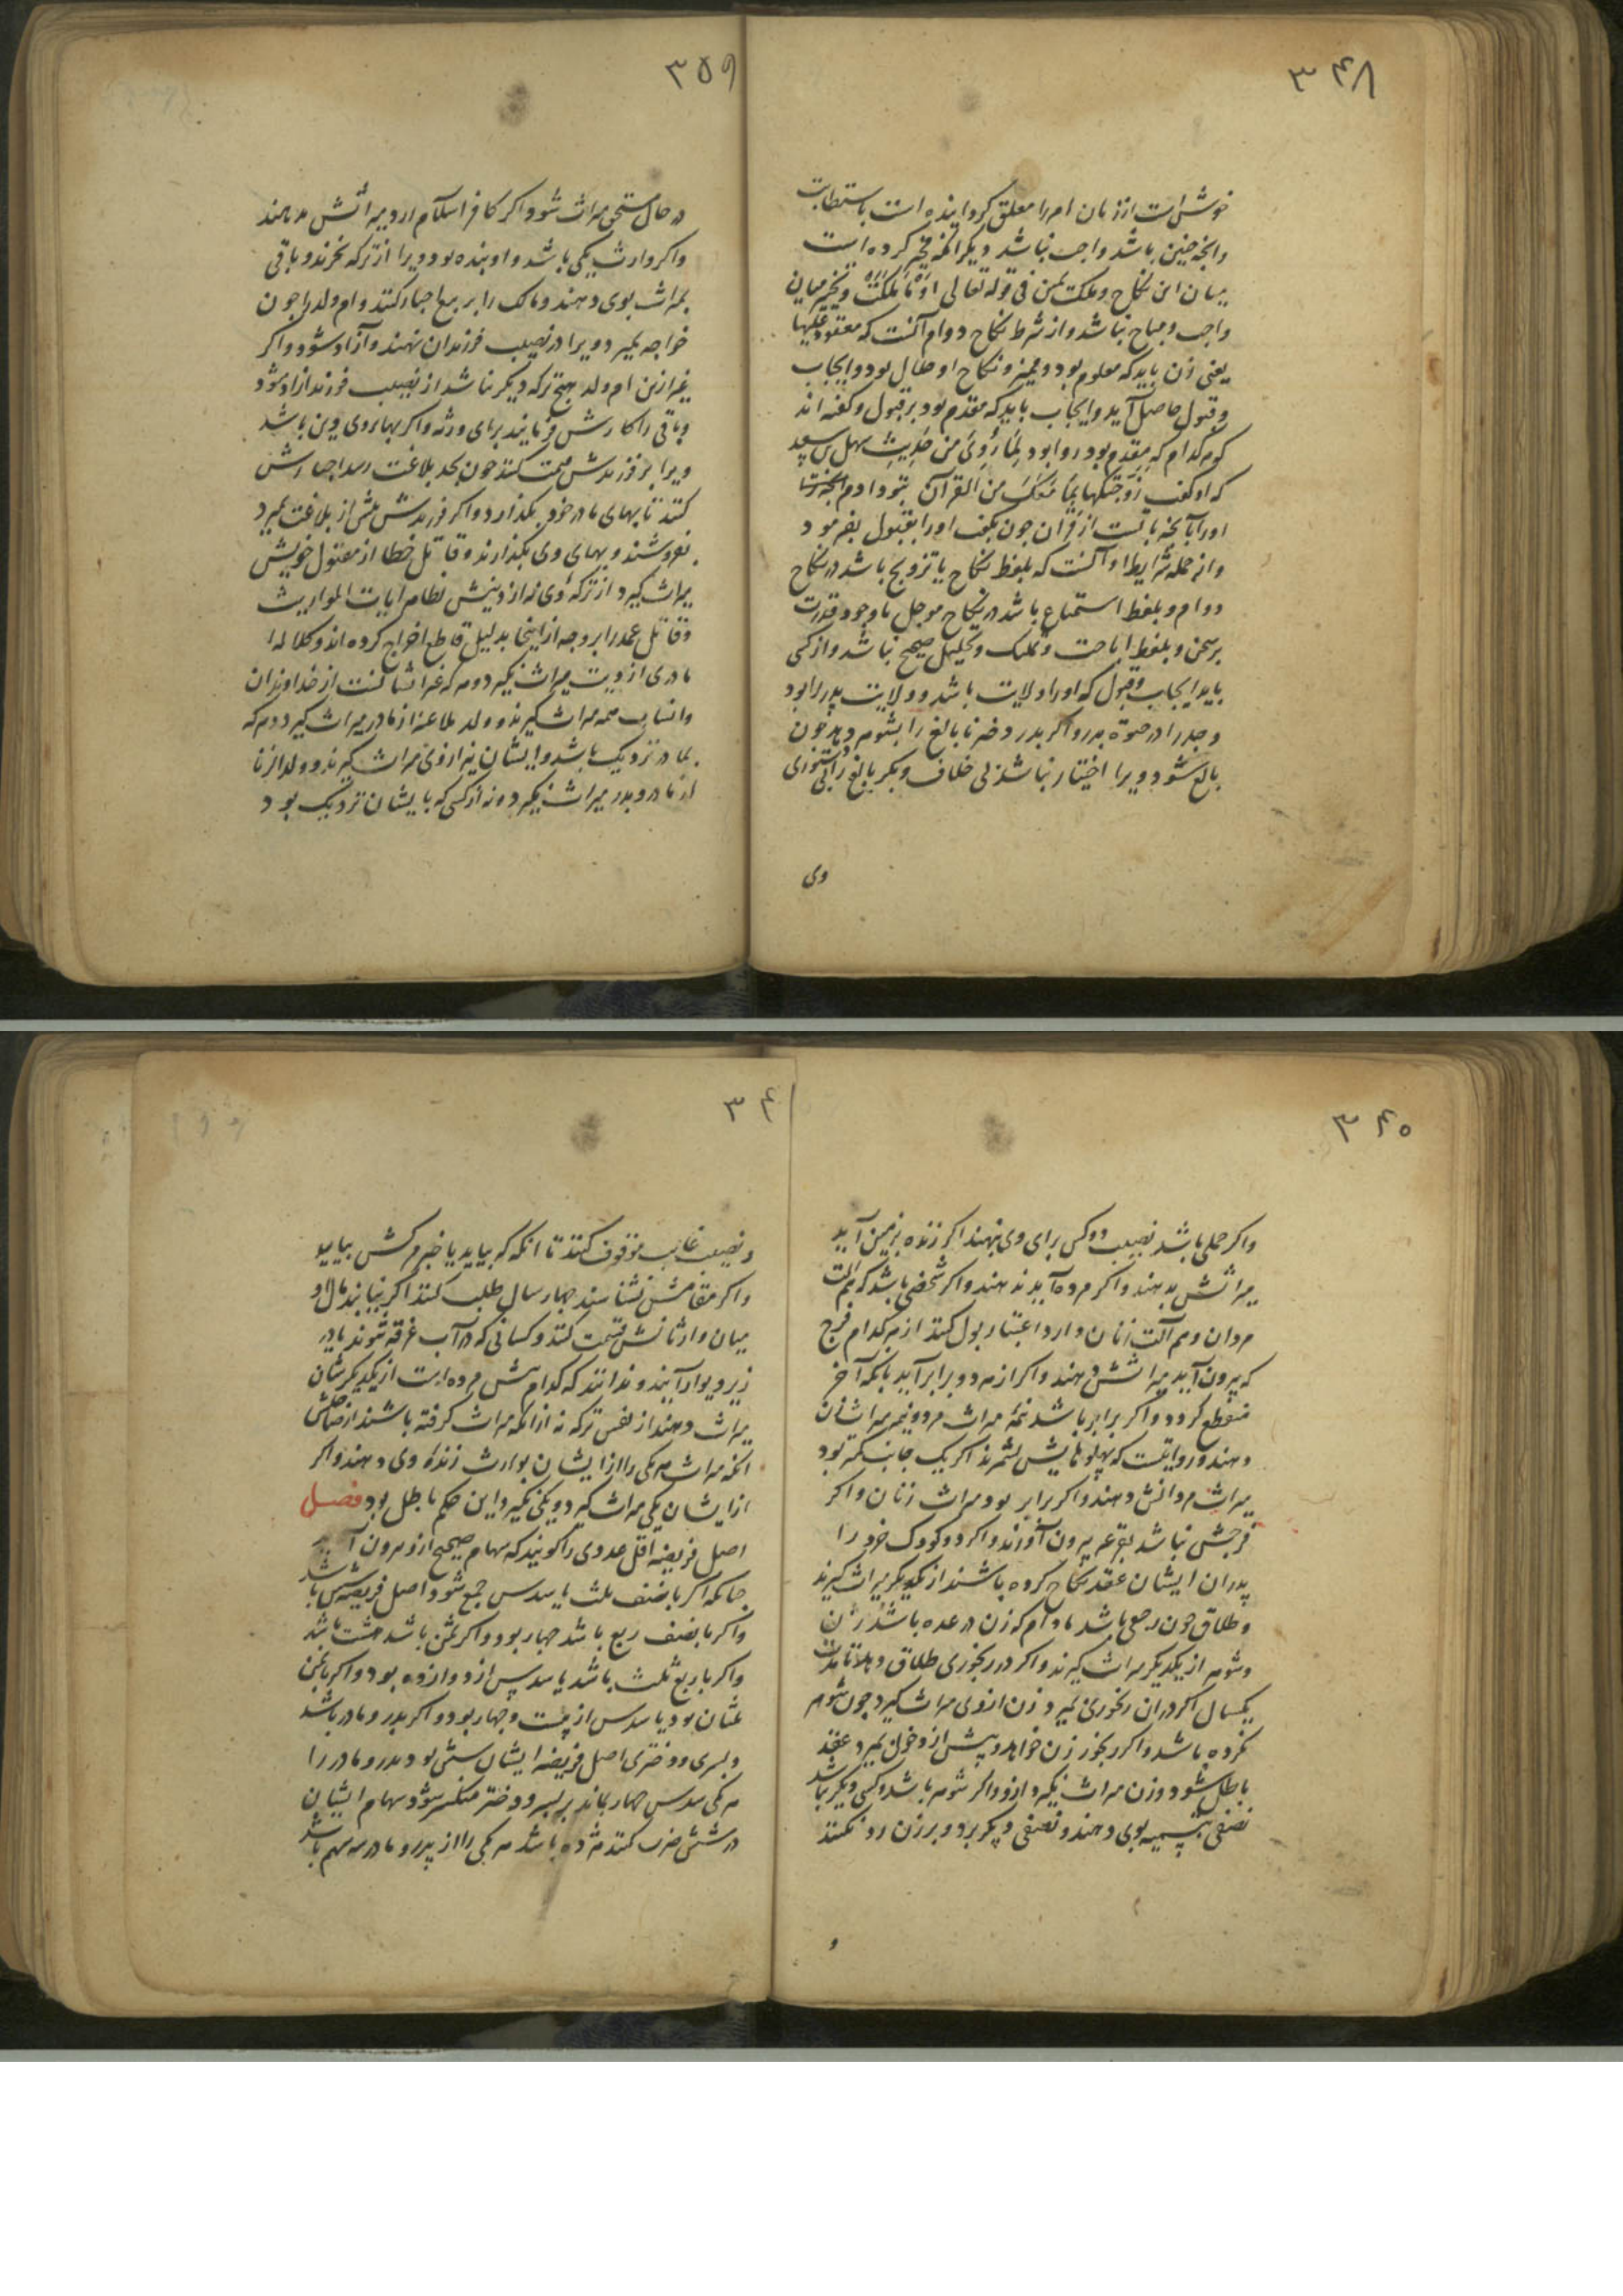 ۳۴۸
خوش است از زنان امر را معلق کردانیده است باستطابت
وانچه چنین باشد واجب نباشد دیکر انکه تخییر کرده است
میان این نکاح وملکت یمین فی قوله تعالی او ما ملکت وتخییر میان
واجب ومباح نباشد واز شرط نکاح دوام آنست که معقود علیها
یعنی زن باید که معلوم بود وممیز ونکاح او حلال بود وایجاب
وقبول حاصل آید وایجاب باید که مقدم بود بر قبول وکفته اند
که هر کدام که مقدم بود روا بود لما روی من حدیث سهل بن سعید
که او کفت زوجتکها بما معک من القرآن بتو دادم
اورا بآنچه باتست از قران چون بکفت اورا بقبول بفرمود
واز جمله شرایط او آنست که بلفظ نکاح یا تزویج باشد در نکاح
دوام وبلفظ استمتاع باشد در نکاح موجل باوجود قدرت
بر سخن وبلفظ اباحت وتملیک وتحلیل صحیح نباشد واز کسی
باید ایجاب وقبول که اورا ولایت باشد وولایت پدر را بود
وجد را در حیوة پدر واکر پدر دختر نابالغ را بشوهر دهد چون
بالغ شود ویرا اختیار نباشد بی خلاف وبکر بالغ را بی دستوری
وی
۳۵۹
در حال مستحق میراث شود واکر کافر اسلام ارد میراثش بدهند
واکر وارث یکی باشد واو بنده بود ویرا از ترکه بخرند وباقی
بمیراث بوی دهند ومالک را بر بیع اجبار کنند وام ولد را چون
خواجه بمیرد ویرا در نصیب فرزندان نهند وآزاد شود واکر
غیر ازین ام ولد هیچ ترکه دیکر نباشد از نصیب فرزند ازاد شود
وباقی را کارش فرمایند برای ورثه واکر بها بروی دین باشد
ویرا بر فرزندش قیمت کنند چون بحد بلاغت رسد اجبارش
کنند تا بهای مادر خود بکذارد واکر فرزندش پیش از بلاغت بمیرد
بفروشند وبهای وی بکذارند وقاتل خطا از مقتول خویش
میراث کیرد از ترکه وی نه از دیتش بظاهر ایات المواریث
وقاتل عمد را بر وجه ازاینجا بدلیل قاطع اخراج کرده اند وکلاله
مادری از دیت میراث نکیرد وهر که غیر ایشانست از خداوندان
وانساب همه میراث کیرند وولد ملاعنه از مادر میراث کیرد وهر که
بمادر نزدیک باشد وایشان نیز ازوی میراث کیرند وولد الزنا
از مادر وپدر میراث نکیرد ونه از کسی که بایشان نزدیک بود
۳۶۰
واکر حملی باشد نصیب دو کس برای وی بنهند اکر زنده بزمین آید
میراثش بدهند واکر مرده آید ندهند واکر شخصی باشد که هم آلت
مردان وهم آلت زنان دارد اعتبار بول کنند از هر کدام فرج
که بیرون آید میراثش دهند واکر از هر دو برابر آید بانکه آخر
منقطع کردد واکر برابر باشد نیمه میراث مرد ونیمه میراث زن
دهند وروایتست که پهلوهایش بشمرند اکر یک جانب کمتر بود
میراث مردانش دهند واکر برابر بود میراث زنان واکر
فرجش نباشد بقرعه بیرون آورند واکر دو کودک خود را
پدران ایشان عقد نکاح کرده باشند از یکدیکر میراث کیرند
وطلاق چون رجعی باشد مادام که زن در عده باشد زن
وشوهر از یکدیکر میراث کیرند واکر در رنجوری طلاق دهد تا مدت
یکسال اکر دران رنجوری بمیرد زن ازوی میراث کیرد چون شوهر
نکرده باشد واکر رنجور زن خواهد وپیش از دخول بمیرد عقد
باطل شود وزن میراث نکیرد ازو واکر شوهر باشد وکسی دیکر نباشد
نصفی بتسمیه بوی دهند ونصفی دیکر برد وبر زن رد نکنند
و
۳۶۱
ونصیب غایب موقوف کنند تا انکه که بیاید یا خبر مرکش بیاید
واکر مقامش نشناسند چهار سال طلب کنند اکر نیابند مال او
میان وارثانش قسمت کنند وکسانی که در آب غرقه شوند یا در
زیر دیوار آیند وندانند که کدام پیش مرده است از یکدیکرشان
میراث دهند از نفس ترکه نه از انکه میراث کرفته باشند از صاحبش
انکه میراث هر یکی را از ایشان بوارث زنده وی دهند واکر
از ایشان یکی میراث کیرد ویکی نکیرد این حکم باطل بود فصل
اصل فریضه اقل عددی را کویند که سهام صحیح ازو بیرون آید
چنانکه اکر با نصف ثلث یا سدس جمع شود اصل فریضه شش باشد
واکر با نصف ربع باشد چهار بود واکر ثمن باشد هشت باشد
واکر با ربع ثلث باشد یا سدس از دوازده بود واکر با ثمن
ثلثان بود یا سدس از بیست وچهار بود واکر پدر ومادر باشد
وپسری ودختری اصل فریضه ایشان شش بود پدر ومادر را
هر یکی سدس چهار بماند بر پسر ودختر منکسر شود سهام ایشان
در شش ضرب کنند هژده باشد هر یکی را از پدر ومادر سه سهم باشد